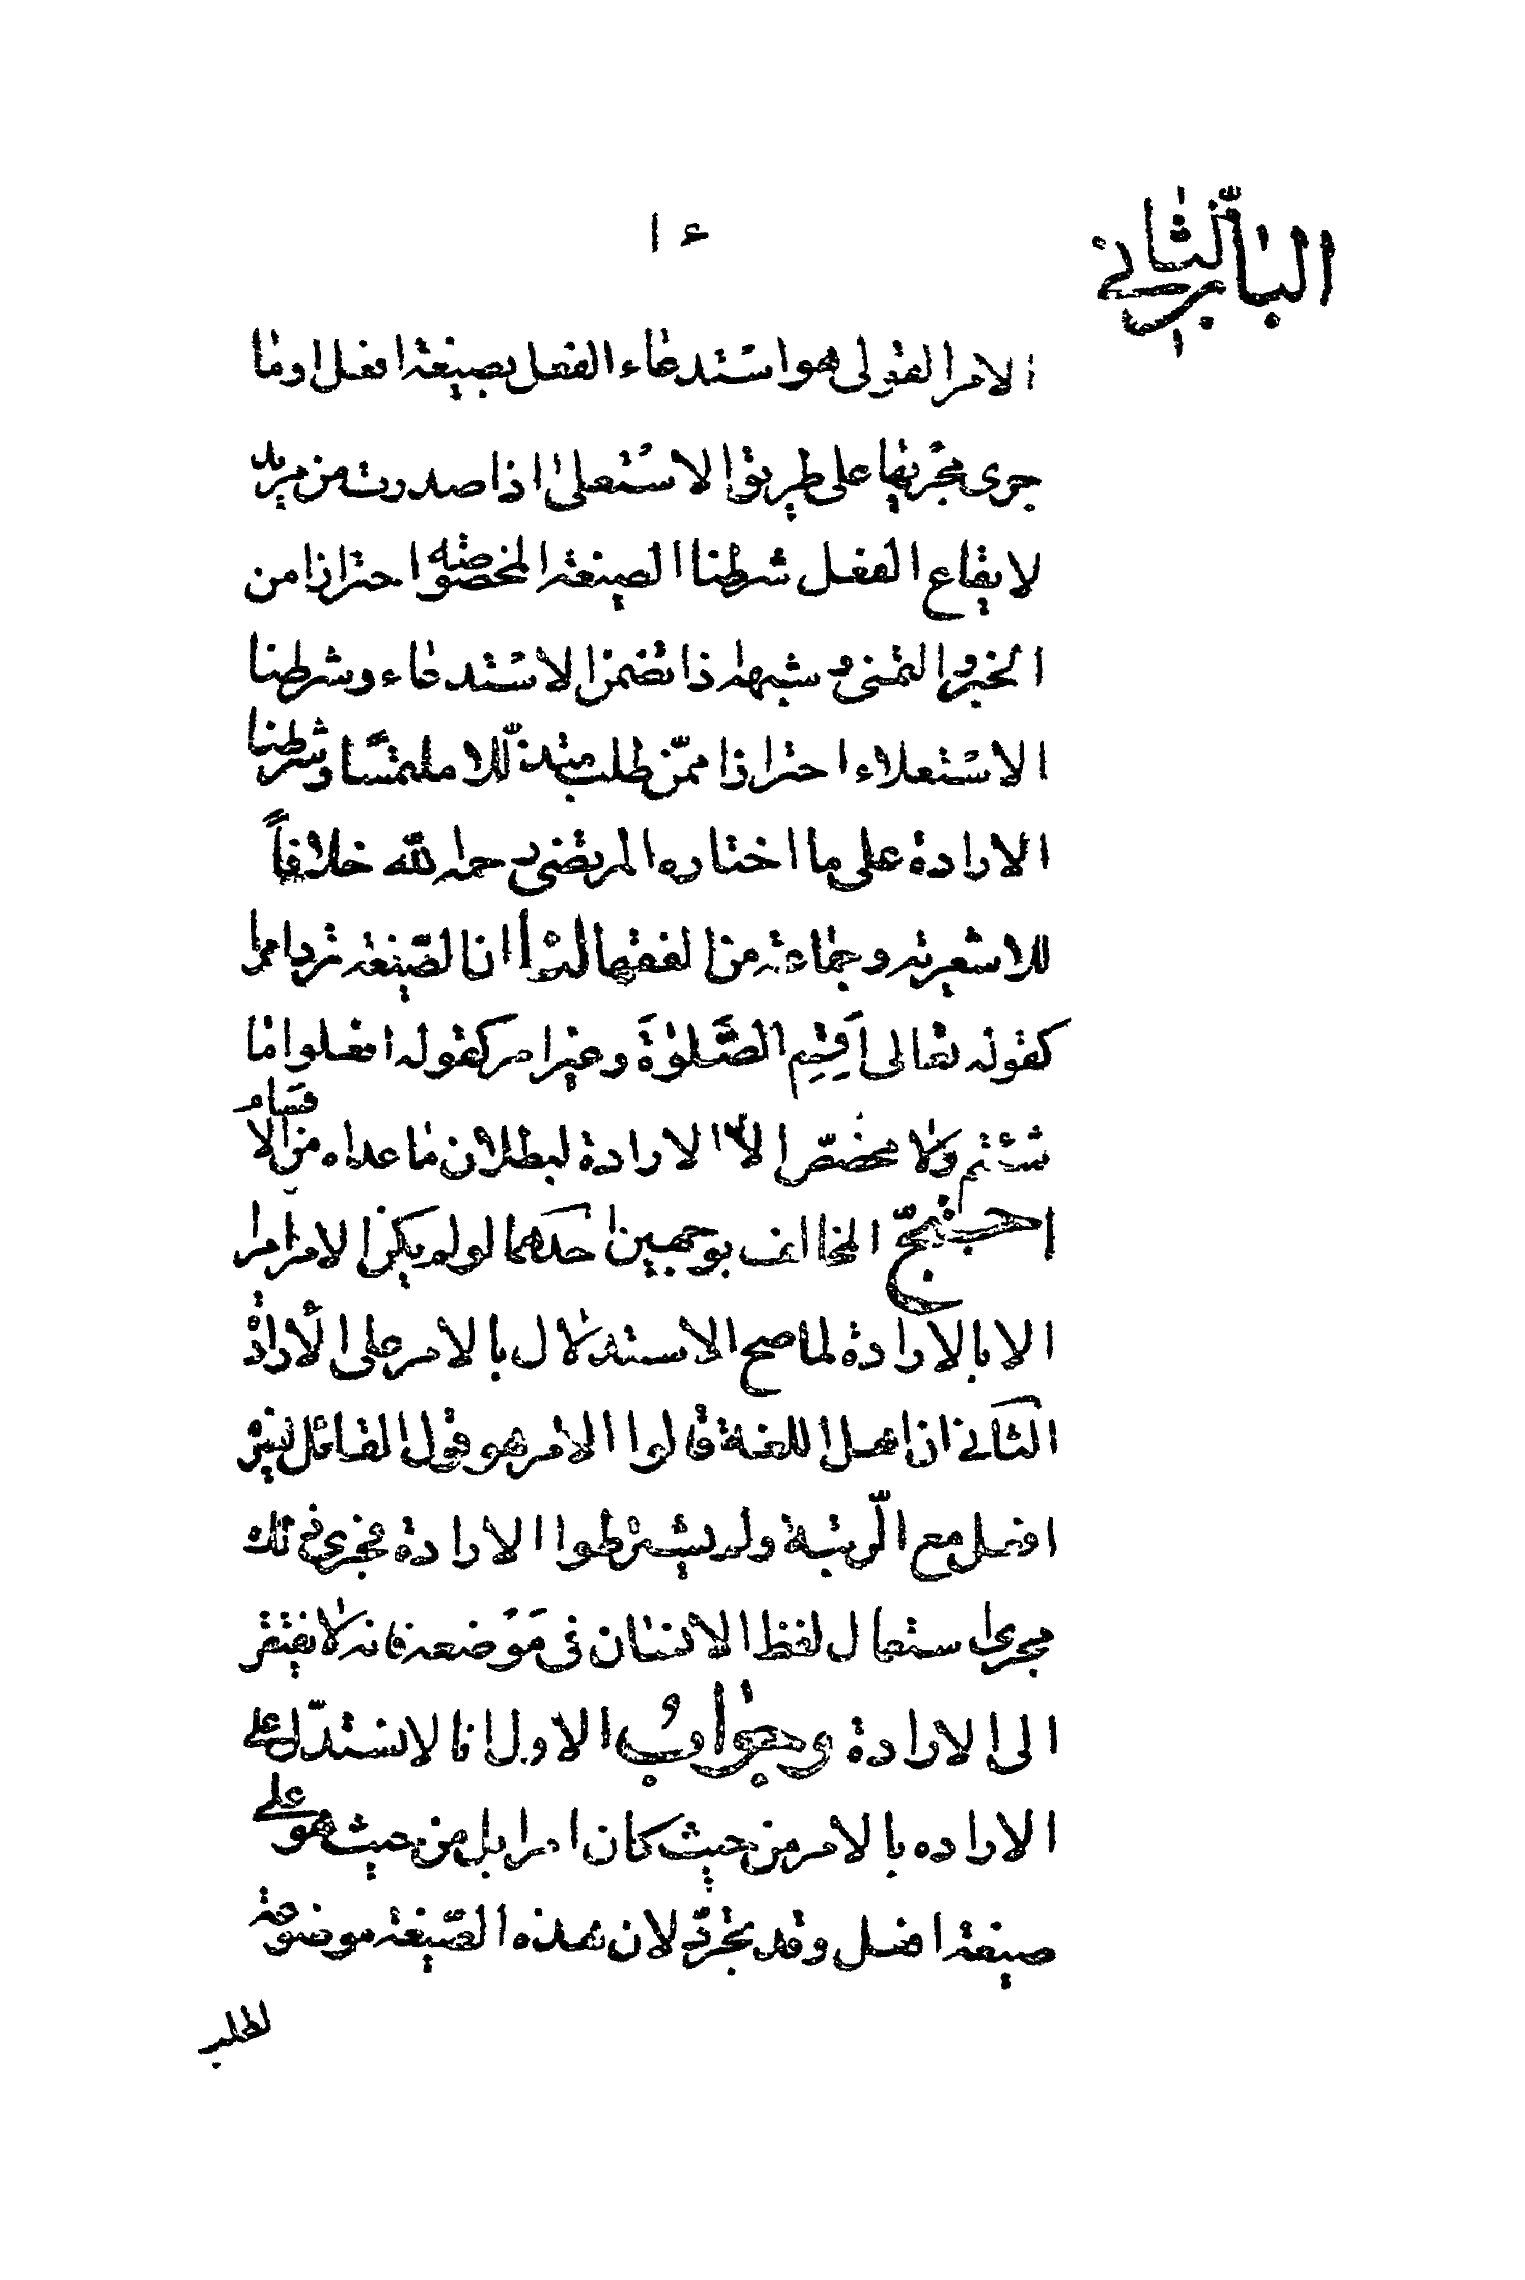 الباب الثاني
١٤
الامر القولى هو استدعاء الفعل بصيغة افعل او ما
جرى مجريها على طريق الاستعلى اذا صدرت من مريد
لايقاع الفعل شرطنا الصيغة المخصوصة احترازا من
الخبر والتمنى وشبهه اذا تضمن الاستدعاء وشرطنا
الاستعلاء احترازا ممّن طلب متذلّلا ملتمسًا وشرطنا
الارادة على ما اختاره المرتضى رحمه الله خلافاً
للاشعرية وجماعة من الفقها لنا ان الصّيغة ترد امرا
كقوله تعالى أَقِيْمِ الصَّلوٰةَ وغير امر كقوله افعلوا ما
شئتم ولا مخصّص الا الارادة لبطلان ما عداه من الاقسام
احتجّ المخالف بوجهين احدهما لو لم يكن الامر امرا
الا بالارادة لما صح الاستدلال بالامر على الأرادة
الثانى ان اهل اللغة قالوا الامر هو قول القائل لغيره
افعل مع الرّتبة ولم يشترطوا الارادة فجرى ذلك
مجرى استعمال لفظ الانسان فى موضعه فانه لا يفتقر
الى الارادة وجواب الاول انا لا نستدلّ على
الاراده بالامر من حيث كان امرا بل من حيث هو على
صيغة افعل وقد تجرّد لان هذه الصّيغة موضوعة
لطلب